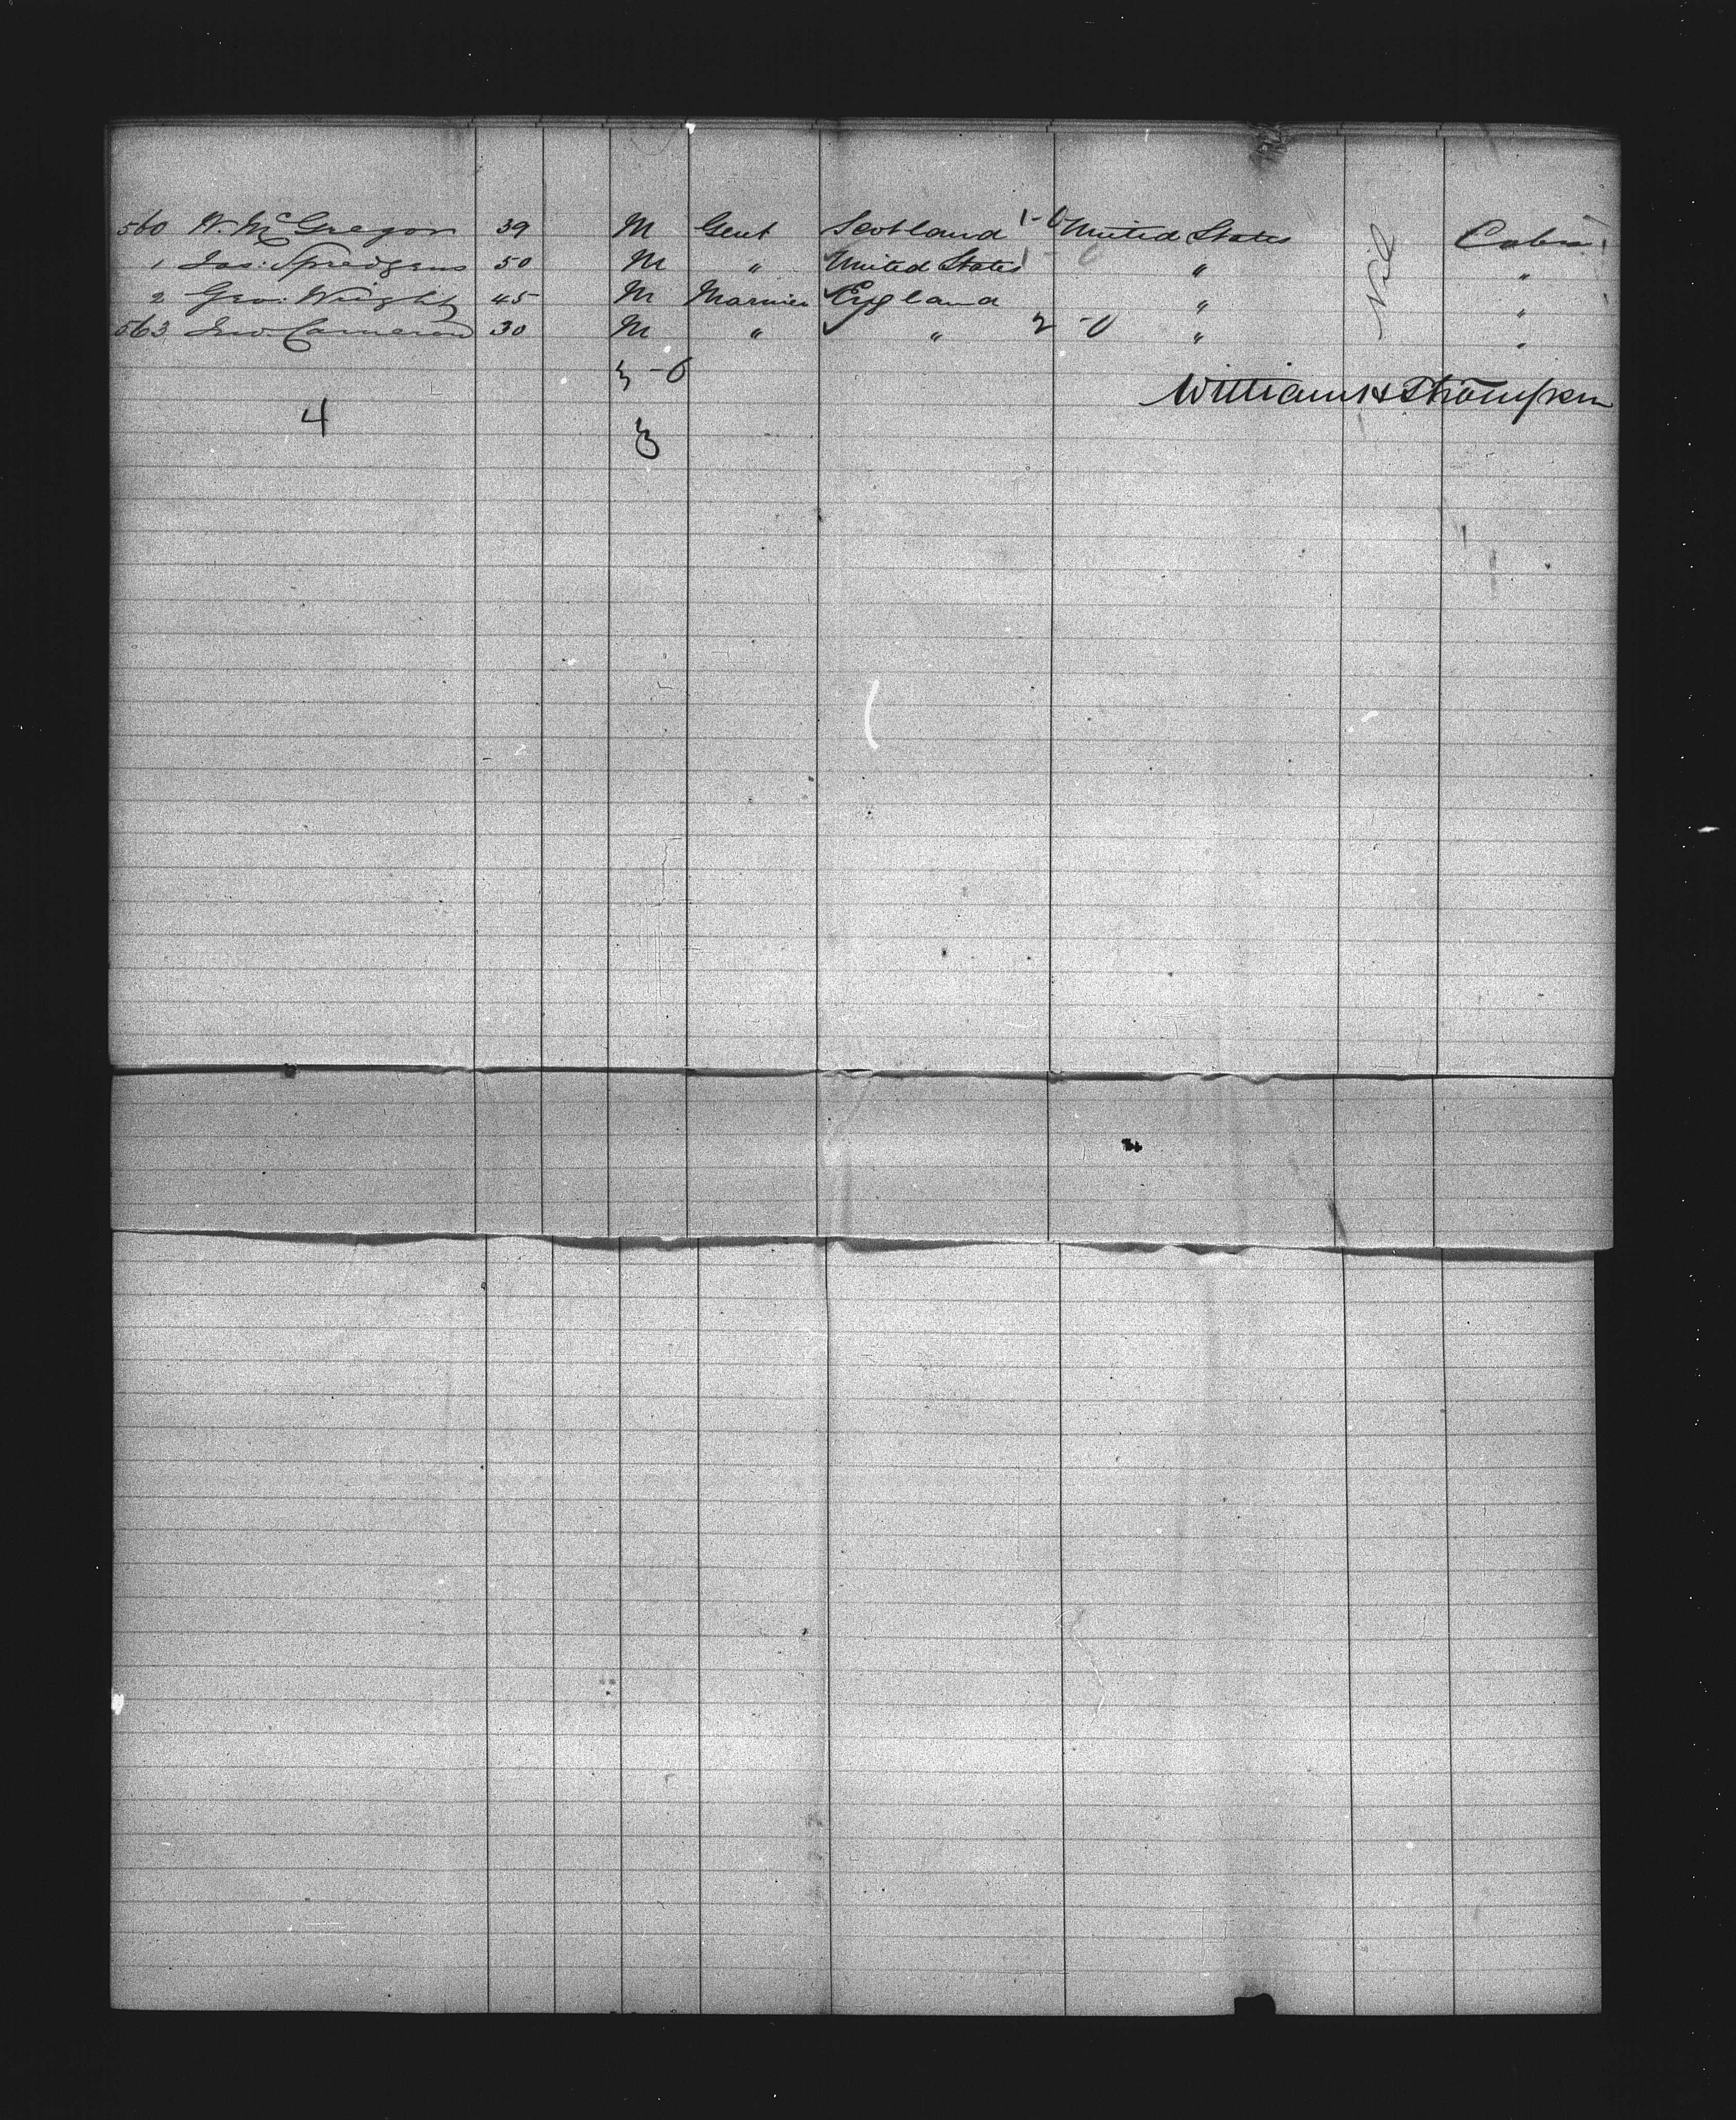 560 W. McGregor 39 M Gent Scotland 1-0 United States Nil Cabin
1 Jas: Spredgens 50 M " United States 1 - 0 " "
2 Geo: Wright 45 M Mariner England " "
563 Jno: Cameron 30 M " " 2 -0 " "
3 -0
William H Thompson
4
3